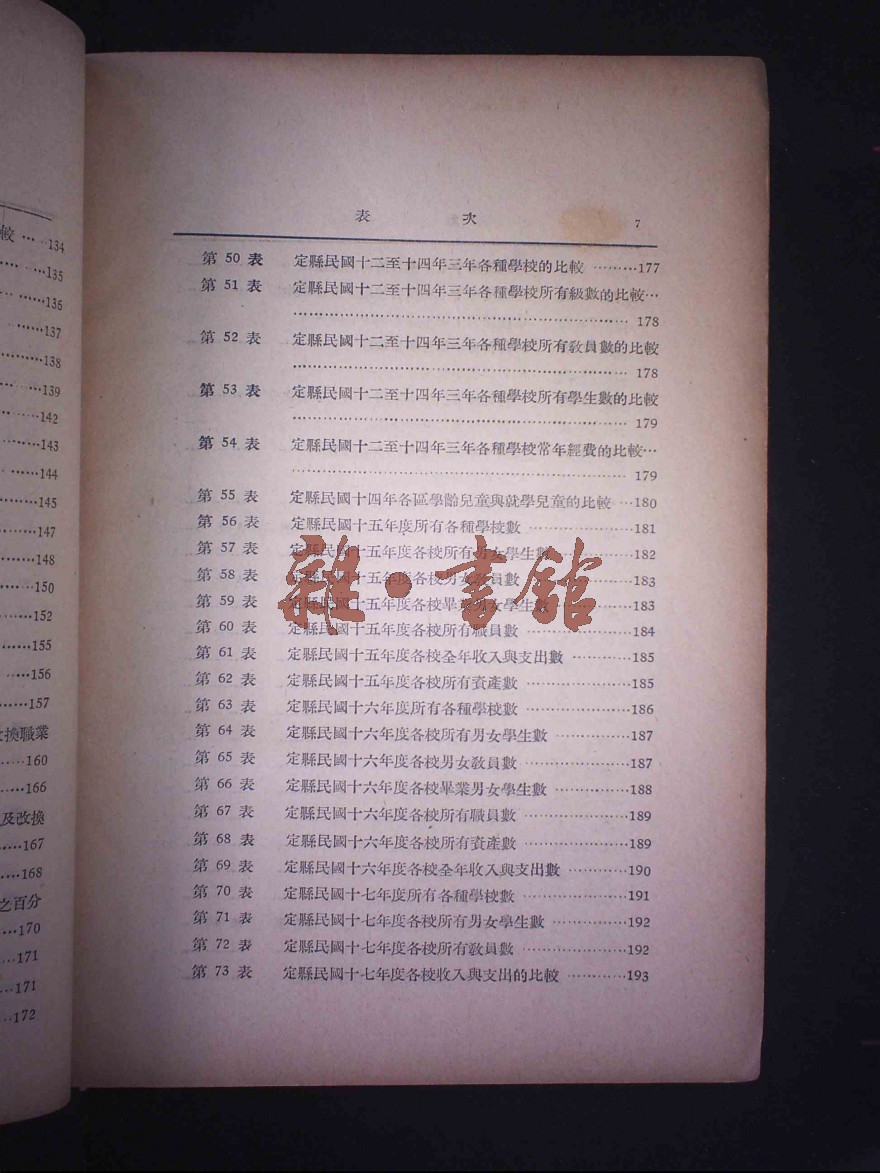 較 … …134
……135
……136
……137
……138
……139
……142
……143
……144
……145
……147
……148
……150
……152
……155
……156
……157
換職業
……160
……166
及改換
……167
……168
之百分
……170
……171
……171
……172
表 次 7
第 50 表 定縣民國十二至十四年三年各種學校的比較 ………177
第 51 表 定縣民國十二至十四年三年各種學校所有級數的比較…
……………………………………………………… 178
第 52 表 定縣民國十二至十四年三年各種學校所有教員數的比較
……………………………………………………… 178
第 53 表 定縣民國十二至十四年三年各種學校所有學生數的比較
……………………………………………………… 179
第 54 表 定縣民國十二至十四年三年各種學校常年經費的比較…
……………………………………………………… 179
第 55 表 定縣民國十四年各區學齡兒童與就學兒童的比較 …180
第 56 表 定縣民國十五年度所有各種學校數 ……………181
第 57 表 定縣民國十五年度各校所有男女學生數 …………182
第 58 表 定縣民國十五年度各校男女教員數 ……………183
第 59 表 定縣民國十五年度各校畢業男女學生數 …………183
第 60 表 定縣民國十五年度各校所有職員數 ……………184
第 61 表 定縣民國十五年度各校全年收入與支出數 …………185
第 62 表 定縣民國十五年度各校所有資產數 ……………185
第 63 表 定縣民國十六年度所有各種學校數 ……………186
第 64 表 定縣民國十六年度各校所有男女學生數 …………187
第 65 表 定縣民國十六年度各校男女教員數 ……………187
第 66 表 定縣民國十六年度各校畢業男女學生數 …………188
第 67 表 定縣民國十六年度各校所有職員數 ……………189
第 68 表 定縣民國十六年度各校所有資產數 ……………189
第 69 表 定縣民國十六年度各校全年收入與支出數 …………190
第 70 表 定縣民國十七年度所有各種學校數 ……………191
第 71 表 定縣民國十七年度各校所有男女學生數 …………192
第 72 表 定縣民國十七年度各校所有教員數 ……………192
第 73 表 定縣民國十七年度各校收入與支出的比較 …………193
雜·書館